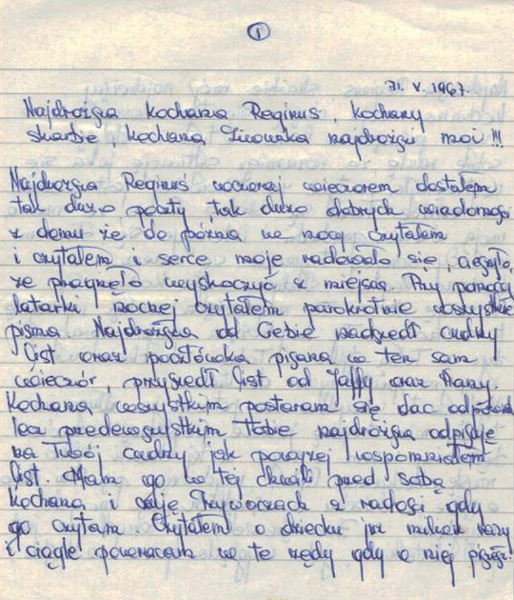 1
31. V. 1967.
Najdroższa kochana Reginuś, kochany
skarbie, kochana Żuowuka najdrożsi moi !!!
Najdroższa Reginuś wczoraj wieczorem dostałem
tak dużo poczty tak dużo dobrych wiadomości
z domu że do późna w nocy czytałem
i czytałem i serce moje radowało się, cieszyło,
że pragnęło wyskoczyć z miejsca. Przy pomocy
latarki nocnej czytałem parokrotnie wszystkie
pisma. Najdroższa od Ciebie nadszedł cudny
list oraz pocztówka pisana w ten sam
wieczór, przyszedł list od Jaffy oraz Hany.
Kochana wszystkim postaram się dać odpowiedź
lecz przedewszystkim Tobie najdroższa odpisuję
na Twój cudny jak powyżej wspomniałem
list. Mam go w tej chwili przed sobą
kochana i oczy z radości gdy
go czytam. Czytałem o dziecku już razy
i ciągle powracam w te rzędy gdy o niej piszesz.